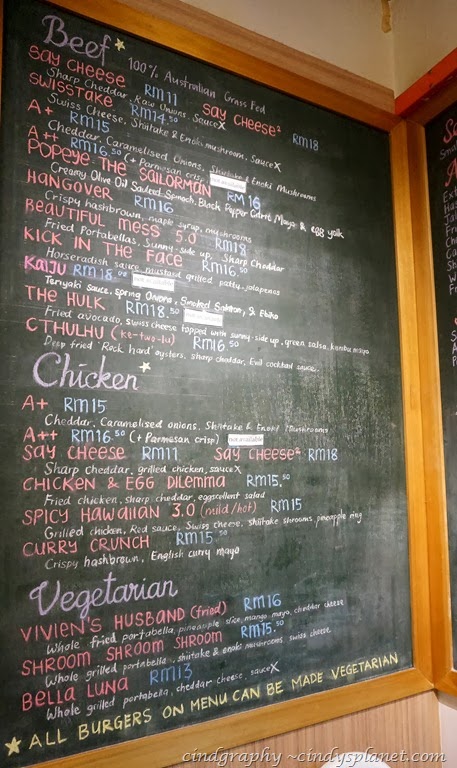 Beef 100% Australian Grass Fed
SAY CHEESE RM11 SAY CHEESE² RM18
Sharp Cheddar, Raw Onions, SauceX
SWISSTAKE RM14.50
Swiss Cheese, Shiitake & Enoki mushroom, SauceX
A+ RM15
Cheddar, Caramelised Onions, Shiitake & Enoki Mushrooms
A++ RM16.50 (+ Parmesan crisp) not available
POPEYE-THE SAILORMAN RM 16
Creamy Olive Oil Sauteed Spinach, Black Pepper Garlic Mayo & egg yolk
HANGOVER RM16
Crispy hashbrown, maple syrup, mushrooms
BEAUTIFUL MESS 5.0 RM18
Fried Portabellas, Sunny-side up, Sharp Cheddar
KICK IN THE FACE RM16.50
Horseradish sauce, mustard grilled patty, jalapenos
KAIJU RM18.00
Teriyaki Sauce, Spring Onions, Smoked Salmon, & Ebiko
THE HULK RM18.50
Fried avocado, swiss cheese topped with sunny-side up, green salsa, kombu mayo
CTHULHU (ke-two-lu) RM16.50
Deep fried 'Rock hard' oysters, sharp cheddar, Evil cocktail sauce.
Chicken
A+ RM15
Cheddar, Caramelised onions, Shiitake & Enoki Mushrooms
A++ RM16.50 (+ Parmesan crisp) not available
SAY CHEESE RM11 SAY CHEESE² RM18
Sharp Cheddar, grilled chicken, sauceX
CHICKEN & EGG DILEMMA RM15.50
Fried chicken, sharp cheddar, eggscellent salad
SPICY HAWAIIAN 3.0 (mild/hot) RM15
Grilled chicken, Red sauce, Swiss cheese, shiitake shrooms, pineapple ring
CURRY CRUNCH RM15.50
Crispy hashbrown, English curry mayo
Vegetarian
VIVIEN'S HUSBAND (fried) RM16
Whole fried portabella, pineapple slice, mango mayo, cheddar cheese
SHROOM SHROOM SHROOM RM15.50
Whole grilled portabella, shiitake & enoki mushrooms swiss cheese
BELLA LUNA RM13
Whole grilled portabella, cheddar cheese, sauceX
ALL BURGERS ON MENU CAN BE MADE VEGETARIAN
cindgraphy ~cindysplanet.com